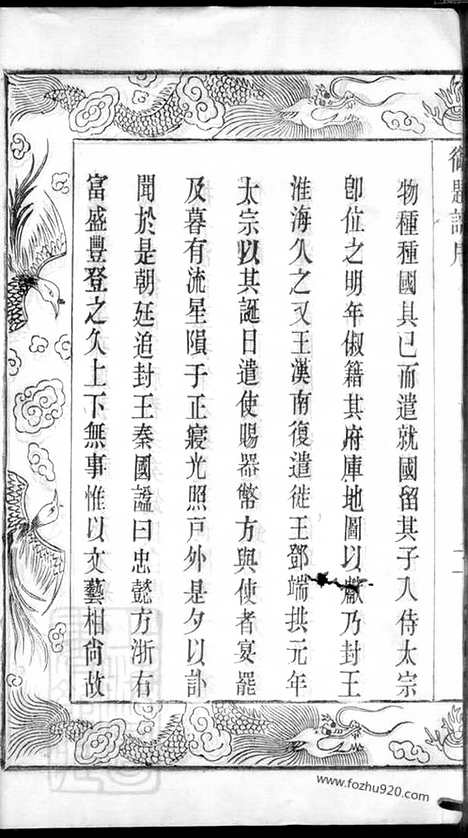 物種種國具已而遣就國留其子入侍太宗
卽位之明年俶籍其府庫地圖以獻乃封王
淮海久之又王漢南復遣徙王鄧端拱元年
太宗以其誕日遣使賜器幣方與使者宴罷
及暮有流星隕于正寢光照戶外是夕以訃
聞於是朝廷追封王秦國謚曰忠懿方浙右
富盛豐登之久上下無事惟以文藝相尙故
www.fozhu920.com